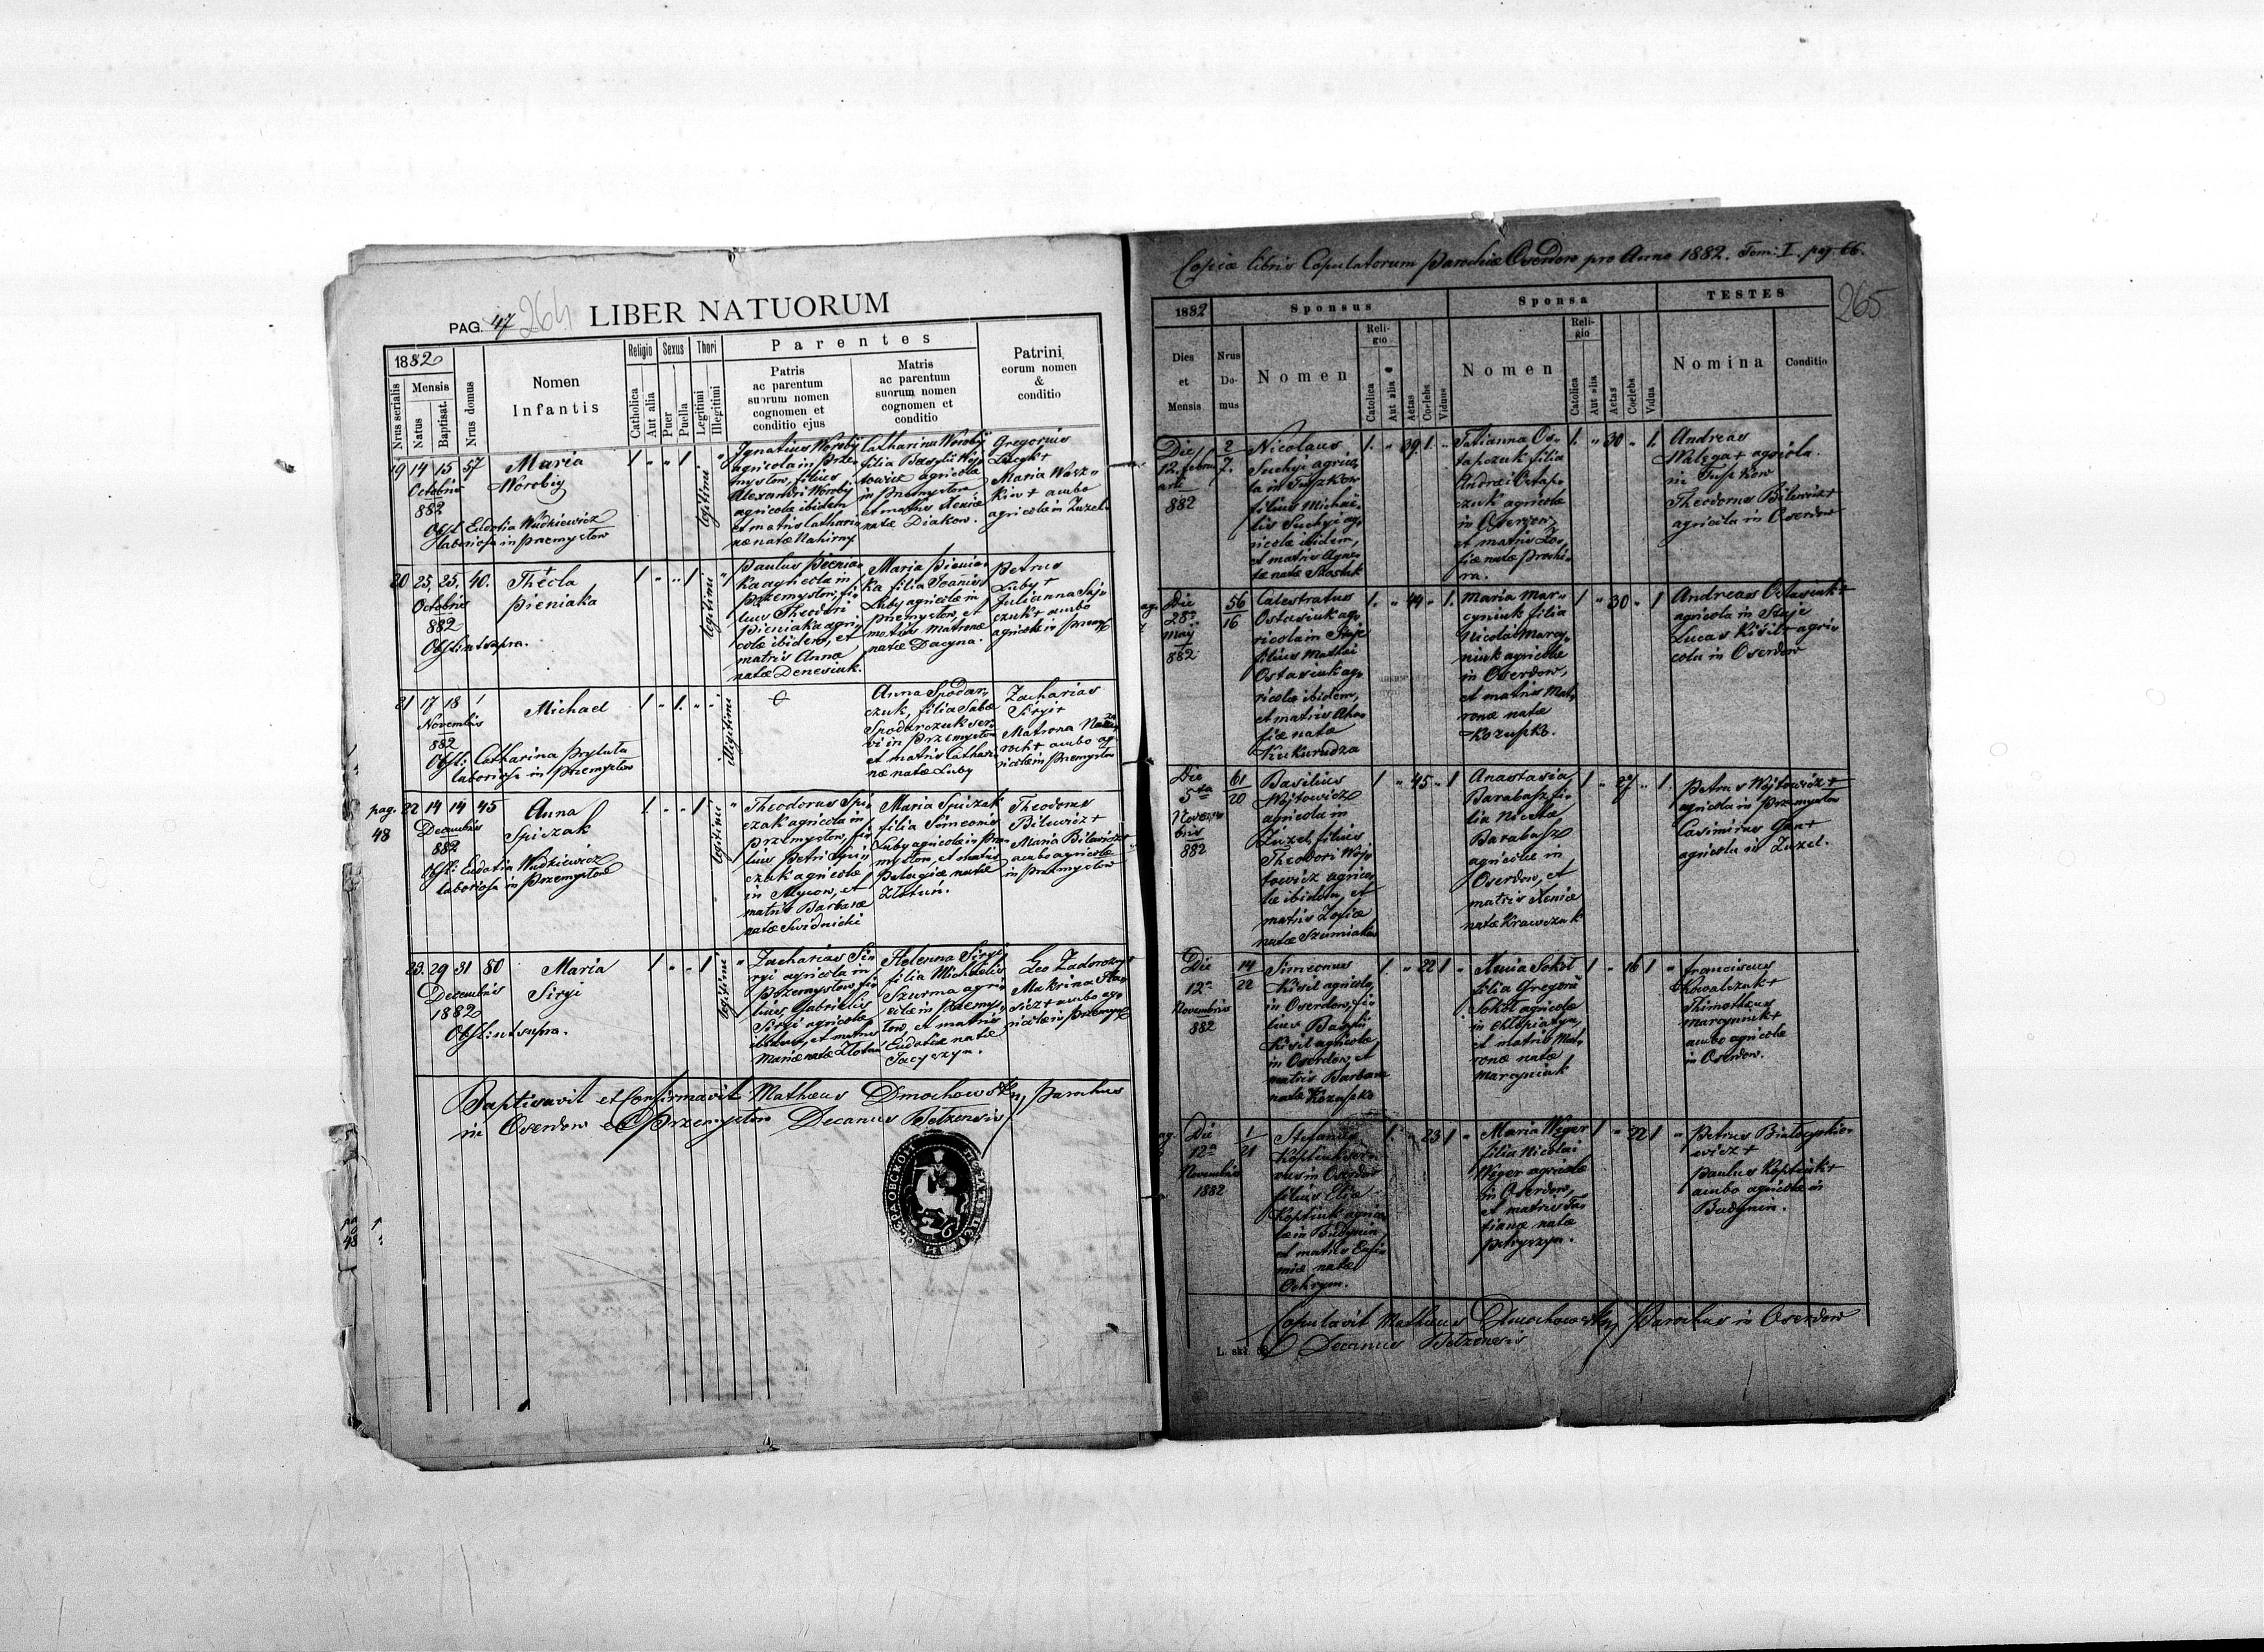 PAG. 47 264 LIBER NATUORUM
1882
Nrus serialis
Mensis
Natus
Baptisat.
Nrus domus
Nomen
Infantis
Religio
Catholica
Aut alia
Sexus
Puer
Puella
Thori
Legitimi
Illegitimi
Parentes
Patris
ac parentum
suorum nomen
cognomen et
conditio ejus
Matris
ac parentum
suorum nomen
cognomen et
conditio
Patrini
eorum nomen
&
conditio
19 14 15 57
Octobris
882
Maria
Worobij
Obst. Eudotia Wudkiewicz
laboriosa in Przemysłow
legitimi
Ignatius Worobij
agricola in Prze-
mysłow, filius
Alexandri Worobij
agricolæ ibidem
et matris Cathari-
næ natæ Nahirny
Catharina Worobij
filia Basylii Woj-
towicz agricolæ
in Przemysłow
et matris Xeniæ
natæ Diakow.
Gregorius
Maria Wasz-
kiw + ambo
agricolæ in Zuzel.
20 25, 25, 40.
Octobris
882
Obst: ut supra.
Thecla
Pieniaka
legitimi
Paulus Pienia-
ka agricola in
Przemysłow, fi-
lius Theodori
Pieniaka agri-
colæ ibidem, et
matris Anna
natæ Denesiuk.
Maria Pienia-
ka filia Joannis
Luby agricolæ in
Przemysłow, et
matris Matronæ
natæ Dacyna.
Petrus
Luby +
Julianna Saj-
czuk + ambo
agricolæ in Przemysł
21 17 18 1
Novembris
882
Michael
Obst: Catharina Prytuła
laboriosa in Przemysłow
illegitimi
Anna Spodar-
czuk, filia Sabæ
Spodarczuk ser-
vi in Przemysłow
et matris Cathari-
næ natæ Luby
Zacharias
Siryi +
Matrona
ambo ag-
ricolæ in Przemysłow
pag. 48
22 14 14 45
Decembris
882
Anna
Spiczak
Obst: Eudotia Wudkiewicz
laboriosa in Przemysłow
legitimi
Theodorus Spi-
czak agricola in
Przemysłow, fi-
lius Petri Spi-
czak agricolæ
in Mycow, et
matris Barbaræ
natæ Swidnicki
Maria Spiczak
filia Simeonis
Luby agricolæ in Prze-
mysłow, et matris
Pelagiæ natæ
Złotuń.
Theodorus
Bilewicz +
Maria Bilewicz +
ambo agricolæ
in Przemysłow
23. 29 31 80
Decembris
1882
Obst: ut supra.
Maria
Siryi
legitimi
Zacharias Si-
ryi agricola in
Przemysłow, fi-
lius Gabrielis
Siryi agricolæ
ibidem, et matris
Mariæ natæ Złotun
Helenna Siryi
filia Michaelis
Szurma agri-
colæ in Przemys-
łow, et matris
Eudotiæ natæ
Jacyszyn.
Leo Zadorozny +
Makrina
ambo ag-
ricolæ in Przemysł
Baptisavit et Confirmavit Matheus Dmochowsky, Parochus
in Oserdow et Przemysłow Decanus Bełzensis
Copiæ libris Copulatorum Parochiæ Oserdow pro Anno 1882. Tom: I. pag. 66.
265
1882
Dies
et
Mensis
Nrus
Do-
mus
Sponsus
Nomen
Reli-
gio
Catolica
Aut alia
Aetas
Coelebs
Viduus
Sponsa
Nomen
Reli-
gio
Catolica
Aut alia
Aetas
Coelebs
Vidua
TESTES
Nomina
Conditio
Die
12. Febru-
arii
882
2
7.
Nicolaus
Suchyi agrico-
la in Tuszkow
filius Michae-
lis Suchyi ag-
ricolæ ibidem,
et matris Agne-
tæ natæ Szostak
39
Tatianna Os-
tapczuk filia
Andrei Ostap-
czuk agricolæ
in Oserdow
et matris Zo-
fiæ natæ Prochi-
ra.
30
Andreas
Walega + agricola
in Tuszkow
Theodorus Bilewicz +
agricola in Oserdow
Die
28va
May
882
56
16
Calestratus
Ostasiuk ag-
ricola in Staje
filius Mathei
Ostasiuk ag-
ricolæ ibidem,
et matris Aha-
fiæ natæ
Kukurudza
44
Maria Mar-
cyniuk filia
Nicolai Marcy-
niuk agricolæ
in Oserdow,
et matris Mat-
ronæ natæ
Kozupko.
30
Andreas Ostasiuk +
agricola in Staje
Lucas Kisil + agri-
cola in Oserdow
Die
5ta
Novem-
bris
882
61
20
Basilius
Wojtowicz
agricola in
Zuzel, filius
Theodori Woj-
towicz agrico-
læ ibidem, et
matris Zofiæ
natæ Szumiako
45
Anastasia
Barabasz fi-
lia Nicolai
Barabasz
agricolæ in
Oserdow, et
matris Xeniæ
natæ Krawczuk
27
Petrus Wojtowicz +
agricola in Przemysłow
Casimirus Gan +
agricola in Zuzel.
Die
12a
Novembris
882
14
22
Simeonus
Kisil agricola
in Oserdow, fi-
lius Basylii
Kisil agricolæ
in Oserdow, et
matris Barbara
natæ Kozupko
22
Xenia Sokoł
filia Gregorii
Sokoł agricolæ
in Chłopiatyn,
et matris Mat-
ronæ natæ
Marcyniuk
16
Franciscus
Kowalczuk +
Thimotheus
Marcyniuk +
ambo agricolæ
in Oserdow.
Die
12a
Novembris
1882
1
21
Stefanus
Koptiuk ser-
vus in Oserdow
filius Eliæ
Koptiuk agrico-
læ in Budynin
et matris Eufi-
miæ natæ
Ochrym.
23
Maria Weger
filia Nicolai
Weger agricolæ
in Oserdow,
et matris Ta-
tianæ natæ
Petryszyn.
22
Petrus Białoskur-
ewicz +
Paulus Koptiuk +
ambo agricolæ in
Budynin.
Copulavit Matheus Dmochowsky, Parochus in Oserdow
Decanus Bełzensis